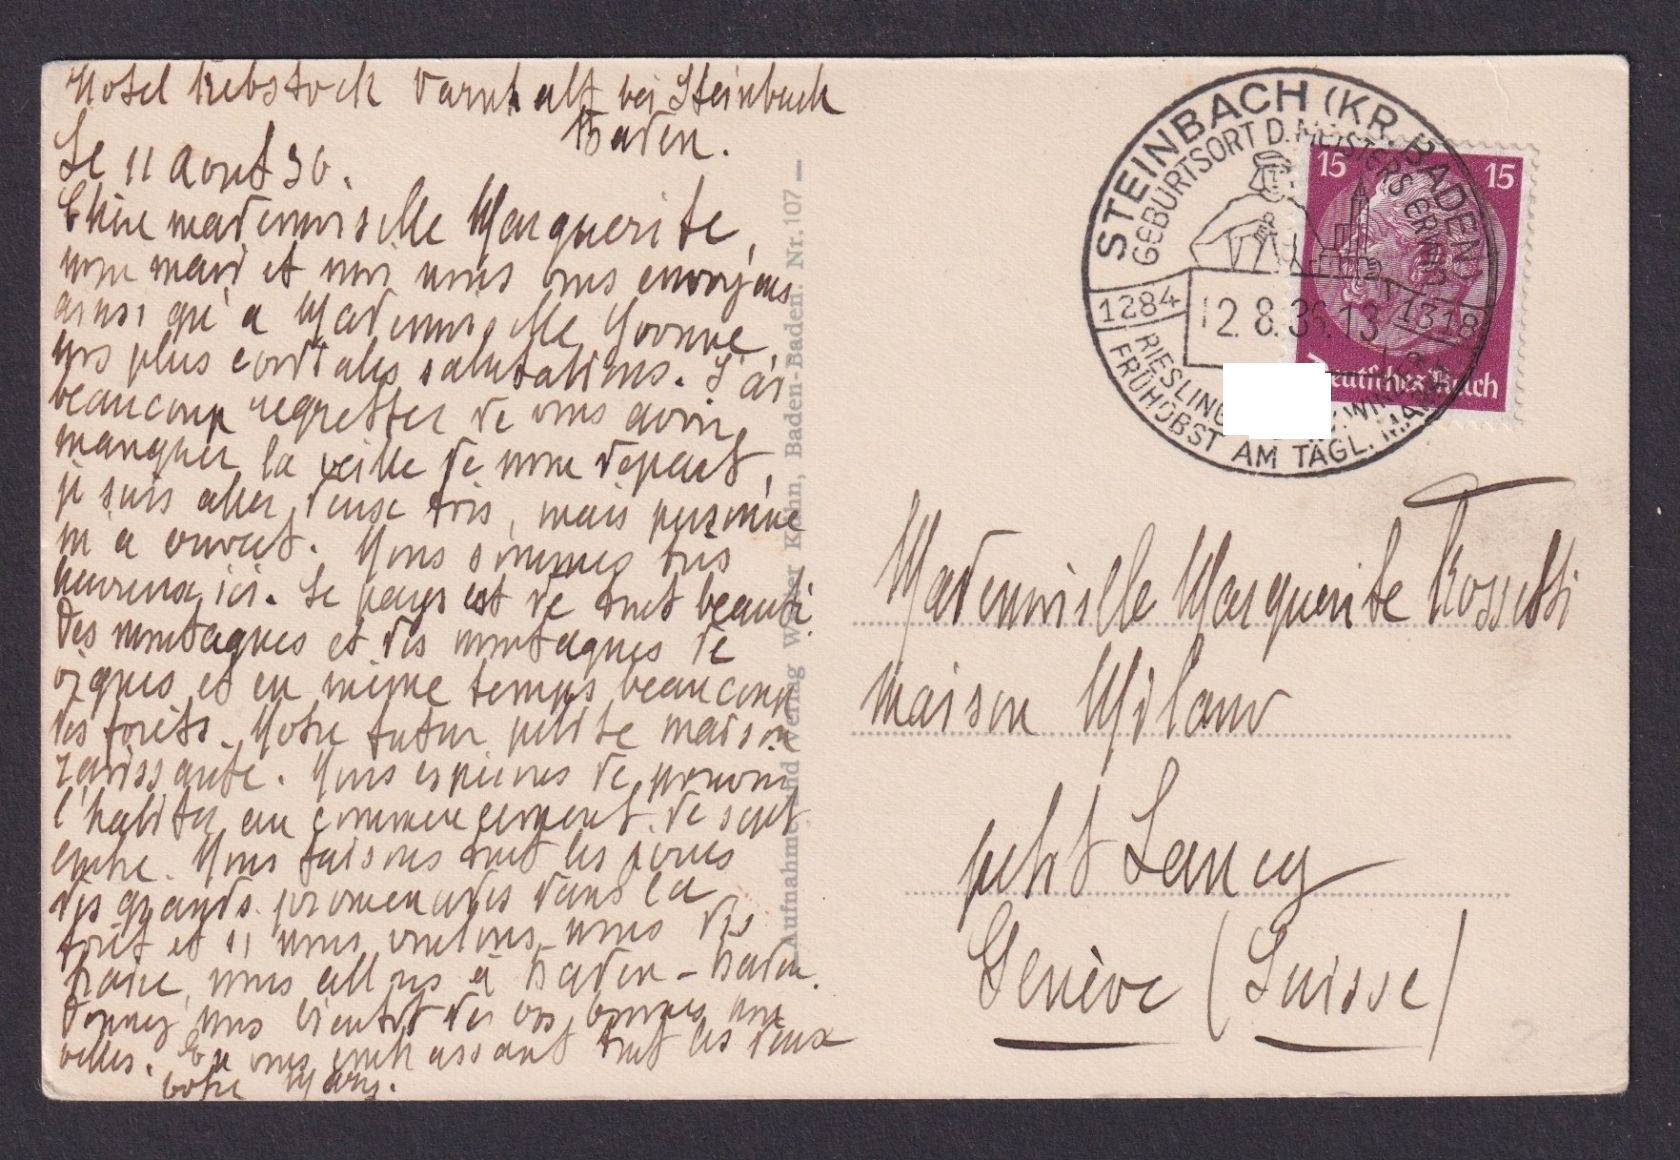 Hotel Rebstock Varnhalt bei Steinbach
Baden.
Le 11 Aout 36.
Chère mademoiselle Marguerite,
mon mari et moi nous vous envoyons
ainsi qu'a Mademoiselle Yvonne,
nos plus cordiales salutations. J'ai
beaucoup regretter de vous avoir
manquer la veille de mon départ,
je suis aller deux fois, mais personne
m'a ouvert. Nous sommes très
heureux ici. Le pays est de tout beauté
des montagnes et des montagnes de
vignes et en même temps beaucoup
des forêts. Notre futur petite maison
ravissante. Nous espérons de pouvoir
l'habiter au commencement de sept
embre. Nous faisons tout les jours
des grands promenades dans la
forêt et si nous voulons nous
nous allons à Baden-Baden.
Donnez nous bientôt des vos bonnes nou
velles. En vous embrassant tout les deux
votre Mary.
Aufnahme und Verlag Walter Kühn, Baden-Baden. Nr. 107 —
STEINBACH (KR. BADEN)
GEBURTSORT D. MEISTERS ERWIN
1284 12.8.36.13 1318
RIESLING
FRÜHOBST AM TÄGL.
15 15
Deutsches Reich
Mademoiselle Marguerite Rossetti
maison Milano
petit Lancy
Genève (Suisse)